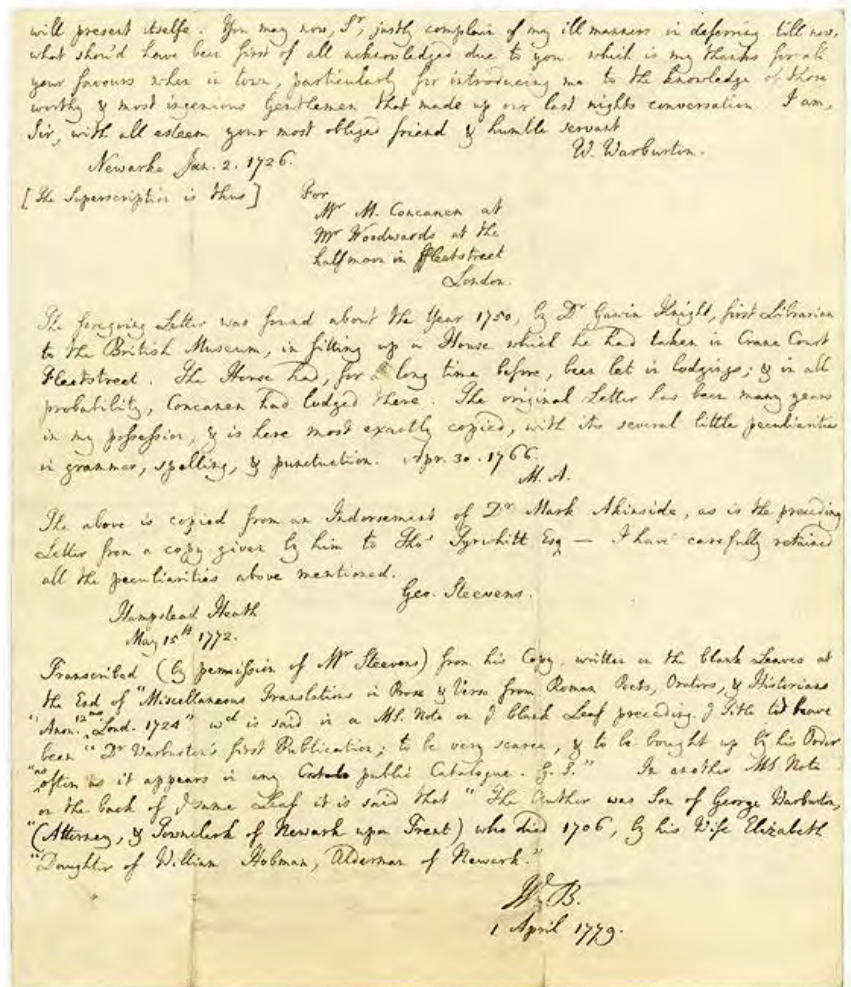 will present itselfe. You may now, Sr, justly complain of my ill manners in deferring till now,
what shou'd have been first of all acknowledged due to you. which is my thanks for all
your favours when in town, particularly for introducing me to the knowledge of those
worthy & most ingenious Gentlemen that made up our last nights conversation I am,
Sir, with all esteem your most obliged friend & humble servant
W. Warburton.
Newarke Jan. 2. 1726.
[the Superscription is thus] For
Mr M. Concanen at
Mr Woodwards at the
halfmoon in Fleetstreet
London.
The foregoing Letter was found about the Year 1750, by Dr Gawin Knight, first Librarian
to the British Museum, in fitting up a House which he had taken in Crane Court
Fleetstreet. The House had, for a long time before, been let in lodgings; & in all
probability, Concanen had lodged there. The original Letter has been many years
in my possession, & is here most exactly copied, with its several little peculiarities
in grammar, spelling, & punctuation. Apr. 30. 1766.
M. A.
The above is copied from an Indorsement of Dr Mark Akinside, as is the preceding
Letter from a copy given by him to Thos Tyrwhitt Esq — I have carefully retained
all the peculiarities above mentioned.
Geo. Steevens.
Hampstead Heath
May 15th 1772.
Transcribed (by permission of Mr Steevens) from his Copy, written on the blank Leaves at
the End of "Miscellaneous Translations in Prose & Verse from Roman Poets, Orators, & Historians
"Anon. 12mo Lond. 1724" wch is said in a MS. Note on ye blank Leaf preceding ye Title to have
been "Dr Warburton's first Publication; to be very scarce, & to be bought up by his Order
"as often as it appears in any public Catalogue. G. S." In another MS Note
on the back of ye same Leaf it is said that "The Author was Son of George Warburton,
"(Attorney, & Townclerk of Newark upon Trent) who died 1706, by his Wife Elizabeth
"Daughter of William Hobman, Alderman of Newark."
Wm B.
1 April 1779.